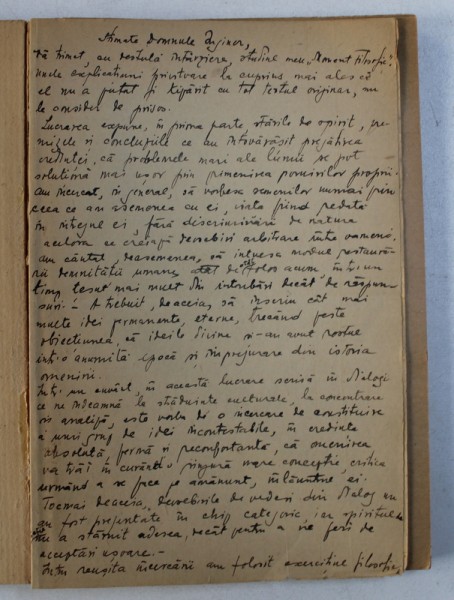 Stimate Domnule Inginer,
Vă trimit, cu destulă întârziere, studiul meu „Moment Filosofic”.
Unele explicatiuni privitoare la cuprins mai ales că
el nu a putut fi tipărit cu tot textul originar, nu
le consider de prisos.
Lucrarea expune, în prima parte, stările de spirit, pre-
misele și concluziile ce au întovărășit pregătirea
credinței, că problemele mari ale lumii se pot
soluționa mai ușor prin primenirea pornirilor proprii.
Am încercat, în general, să vorbesc oamenilor numai prin
ceea ce am asemenea cu ei, viața fiind redată
în întregul ei, fără discriminări de natura
acelora ce creiază deosebiri arbitrare între oameni.
Am căutat, deasemenea, să intuesc modul restaură-
rii demnității umane, de folos acum, într'un
timp țesut mai mult din întrebări decât de răspun-
suri. A trebuit, deaceia, să înscriu cât mai
multe idei permanente, eterne, trecând peste
obiectiunea, că ideile divine și-au avut rostul
într-o anumită epocă și împrejurare din istoria
omenirii.
Într'un cuvânt, în această lucrare scrisă în dialog
ce ne îndeamnă la străduințe culturale, la concentrare
și analiză, este vorba de o încercare de constituire
a unui grup de idei incontestabile, în credința
absolută, fermă și reconfortantă, că omenirea
va trăi în curând o singură mare concepție, critica
urmând a se face pe amănunt, înlăuntrul ei.
Tocmai deaceia, deosebirile de vederi din dialog nu
au fost prezentate în chip categoric, iar spiritul
nu a stăruit adesea, decât pentru a ne feri de
acceptări ușoare.-
Între reușita încercării am folosit exercițiul filosofic